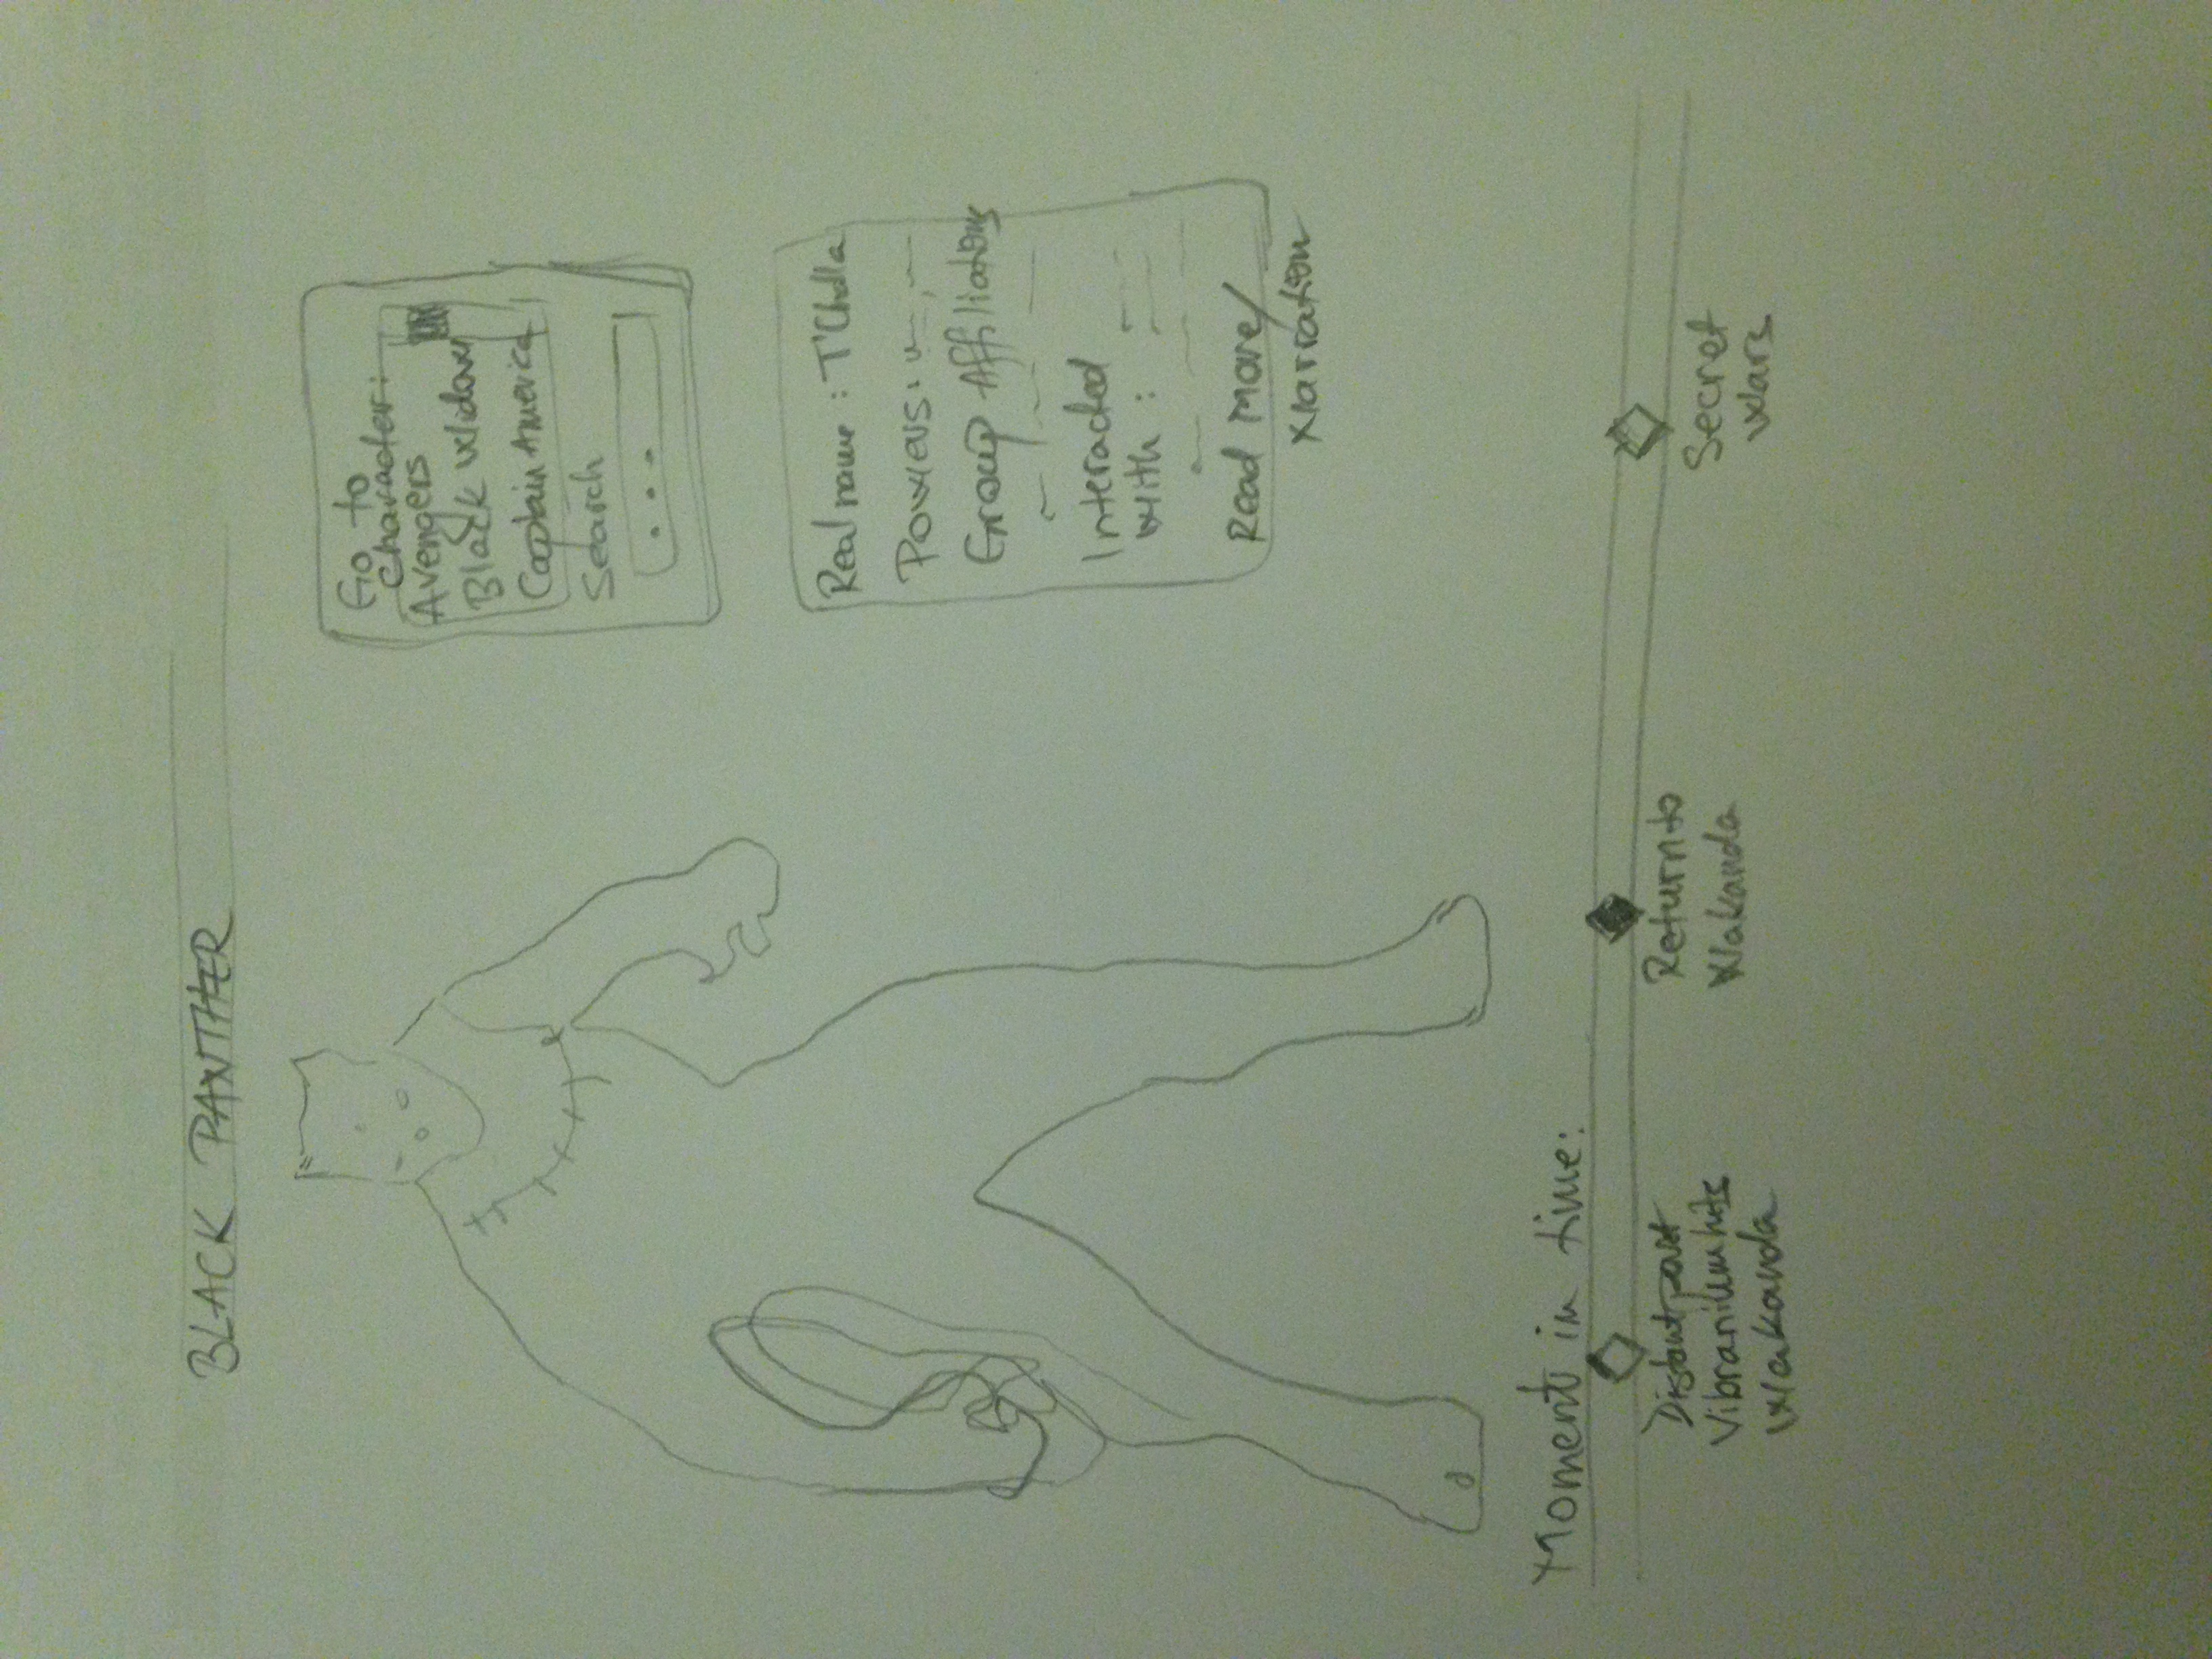 BLACK PANTHER
Go to
Character:
Avengers
Black Widow
Captain America
Search
...
Real name : T'Challa
Powers:
Group Affiliations
Interacted
with :
Read More/
Narration
Moment in time:
Distant past
Vibranium hits
Wakanda
Return to
Wakanda
Secret
Wars